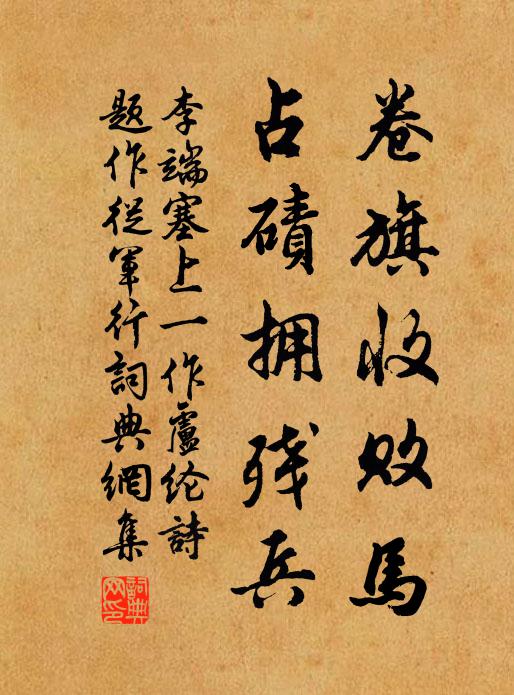 卷旗收败馬
占磧拥残兵
李端塞上一作盧纶詩
題作從軍行詞典網集
詞典网印